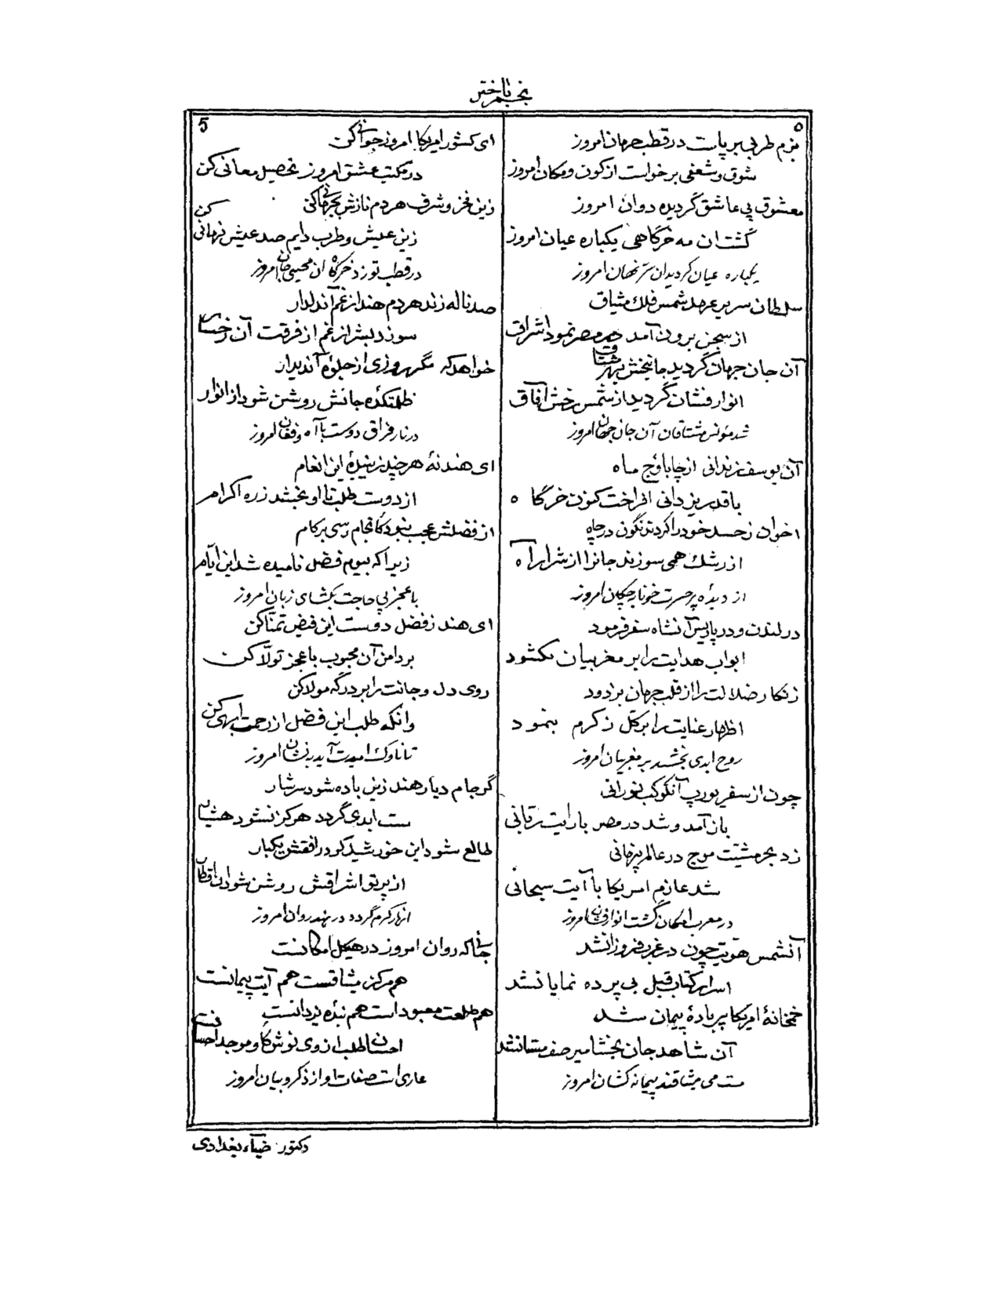 نجم باختر
۵
5
بزم طربی برپاست در قطب جهان امروز
شوق و شعفی برخواست از کون و مکان امروز
معشوق پی عاشق گردیده دوان امروز
گشت آن مه خرگاهی یکباره عیان امروز
یکباره عیان گردید آن سرّ نهان امروز
سلطان سریر عهد شمس فلک میثاق
از سجن برون آمد در مصر نمود اشراق
آن جان جهان گردید جانبخش بهر مشتاق
انوار فشان گردید از شمس رخش آفاق
شد مونس مشتاقان آن جان جهان امروز
آن یوسف زندانی از چاه باوج ماه
باقدر یزدانی افراخت کنون خرگاه
اخوان ز حسد خود را کردند نگون در چاه
از رشک همی سوزند جانرا از شرار آه
از دیدهٔ پر حسرت خونابه چکان امروز
در لندن و در پاریس آنشاه سفر فرمود
ابواب هدایت را بر مغربیان بگشود
زنگار ضلالت را از قلب جهان بزدود
اظهار عنایت را بر کل ز کرم بنمود
روح ابدی بخشید بر مغربیان امروز
چون از سفر یورپ آنکوکب نورانی
باز آمد و شد در مصر با رایت ربّانی
زد بحر مشیّت موج در عالم پنهانی
شد عازم امریکا با آیت سبحانی
در مغرب امکان گشت انوار فشان امروز
آنشمس هویّت چون در غرب فروزانشد
اسرار کتاب قبل بی پرده نمایانشد
خمخانهٔ امریکا پر بادهٔ پیمان شد
آن شاهد جان بخشا میر صف مستانشد
مست می میثاقند پیمانه کشان امروز
ای کشور امریکا امروز جوانی کن
در مکتب عشق امروز تحصیل معانی کن
زین فخر و شرف هردم نازش بجهانی کن
زین عیش و طرب دایم صد عیش نهانی کن
در قطب تو زد خرگاه آن محیی جان امروز
صد ناله زند هردم هند از غم آندلدار
سوزد دلش از غم از فرقت آن رخسار
خواهد که مگر روزی از جلوهٔ آندیدار
ظلمتکدهٔ جانش روشن شود از انوار
در نار فراق دوست با آه و فغان امروز
ای هند نهٔ هر چند زیبندهٔ این انعام
از دوست طلب تا او بخشد ز ره اکرام
از فضلش عجب نبود کانجام رسی بر کام
زیرا که بیوم فضل نامیده شد این ایام
با عجز پی حاجت بگشای زبان امروز
ای هند ز فضل دوست این فیض تمنّا کن
بر دامن آن محبوب با عجز تولّا کن
روی دل و جانت را بر درگه مولا کن
وانگه طلب این فضل از رحمت ابهی کن
تا ناوک امیدت آید بنشان امروز
گر جام دیار هند زین باده شود سرشار
مست ابدی گردد هرگز نشود هشیار
طالع شود این خورشید گر در افقش یکبار
از پرتو اشراقش روشن شود آن اقطار
انهار کرم گردد در هند روان امروز
جانی که روان امروز در هیکل امکانست
هم مرکز میثاقست هم آیت پیمانست
هم طلعت معبود است هم بندهٔ یزدانست
احسان طلب از وی نوش کاو موجد احسانست
عاری است صفات او از ذکر و بیان امروز
دکتور ضیاء بغدادی